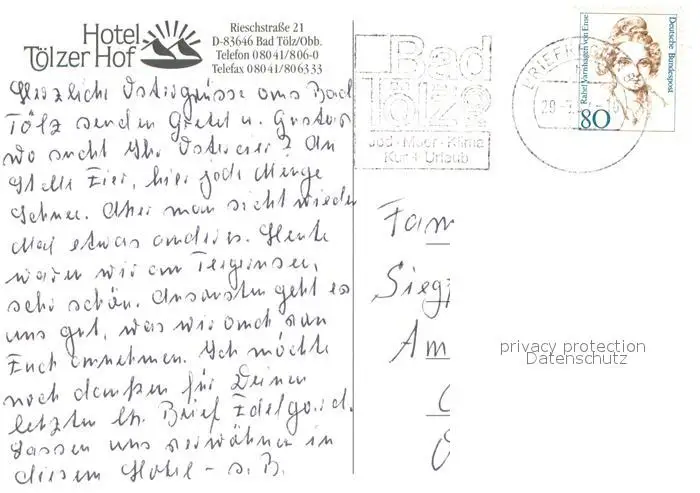 Hotel
Tölzer Hof
Rieschstraße 21
D-83646 Bad Tölz/Obb.
Telefon 08041/806-0
Telefax 08041/806333
Herzliche Ostergrüsse aus Bad
Tölz senden Gretel u. Gustav
wo sucht Ihr Ostereier? An
Stelle Eier, hier jede Menge
Schnee. Aber man sieht wieder
Mal etwas anderes. Heute
waren wir am Tegernsee,
sehr schön. Ansonsten geht es
uns gut, was wir auch von
Euch annehmen. Ich möchte
noch danken für Deinen
letzten lb. Brief Edelgard.
Lassen uns verwöhnen in
diesem Hotel - s. B.
Bad
Tölz
Jod - Moor - Klima
Kur + Urlaub
Rahel Varnhagen von Ense
Deutsche Bundespost
80
Fam
Sieg
Am
privacy protection
Datenschutz